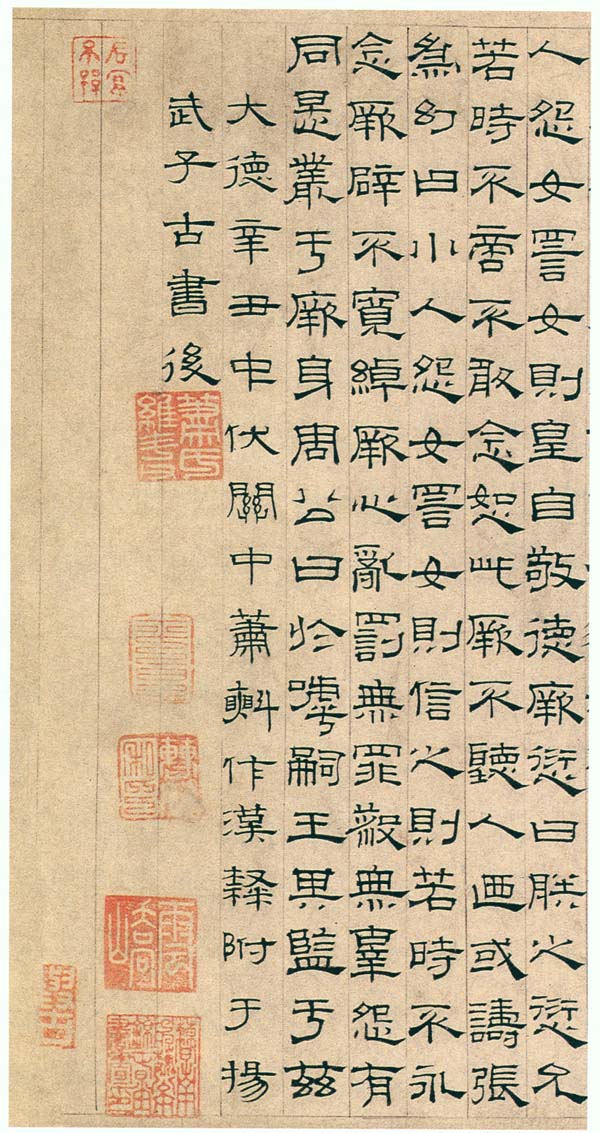 人怨女詈女則皇自敬德厥愆曰朕之愆允
若時不啻不敢含怒此厥不聽人廼或譸張
為幻曰小人怨女詈女則信之則若時不永
念厥辟不寬綽厥心亂罰無罪殺無辜怨有
同是叢于厥身周公曰於嘑嗣王其監于茲
大德辛丑中伏關中蕭𣂏作漢隸附于揚
武子古書後
蕭氏維斗